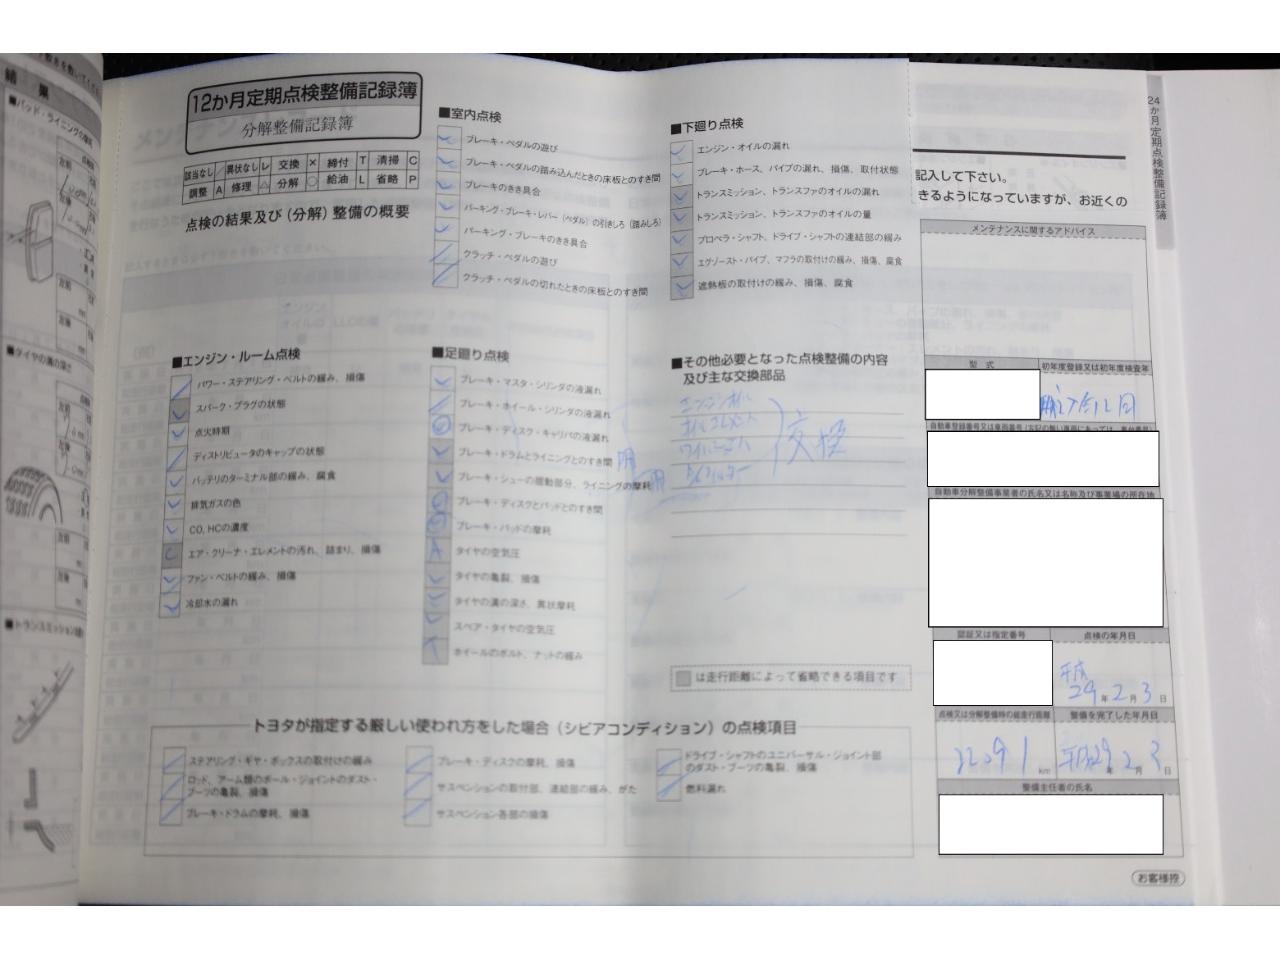 12か月定期点検整備記録簿
分解整備記録簿
該当なし ／ 異状なし レ 交換 × 締付 T 清掃 C
調整 A 修理 △ 分解 ○ 給油 L 省略 P
点検の結果及び（分解）整備の概要
■室内点検
ブレーキ・ペダルの遊び
ブレーキ・ペダルの踏み込んだときの床板とのすき間
ブレーキのきき具合
パーキング・ブレーキ・レバー（ペダル）の引きしろ（踏みしろ）
パーキング・ブレーキのきき具合
クラッチ・ペダルの遊び
クラッチ・ペダルの切れたときの床板とのすき間
■下廻り点検
エンジン・オイルの漏れ
ブレーキ・ホース、パイプの漏れ、損傷、取付状態
トランスミッション、トランスファのオイルの漏れ
トランスミッション、トランスファのオイルの量
プロペラ・シャフト、ドライブ・シャフトの連結部の緩み
エグゾースト・パイプ、マフラの取付けの緩み、損傷、腐食
遮熱板の取付けの緩み、損傷、腐食
■エンジン・ルーム点検
パワー・ステアリング・ベルトの緩み、損傷
スパーク・プラグの状態
点火時期
ディストリビュータのキャップの状態
バッテリのターミナル部の緩み、腐食
排気ガスの色
CO, HCの濃度
エア・クリーナ・エレメントの汚れ、詰まり、損傷
ファン・ベルトの緩み、損傷
冷却水の漏れ
■足廻り点検
ブレーキ・マスタ・シリンダの液漏れ
ブレーキ・ホイール・シリンダの液漏れ
ブレーキ・ディスク・キャリパの液漏れ
ブレーキ・ドラムとライニングとのすき間
ブレーキ・シューの摺動部分、ライニングの摩耗
ブレーキ・ディスクとパッドとのすき間
ブレーキ・パッドの摩耗
タイヤの空気圧
タイヤの亀裂、損傷
タイヤの溝の深さ、異状摩耗
スペア・タイヤの空気圧
ホイールのボルト、ナットの緩み
■その他必要となった点検整備の内容
及び主な交換部品
エンジンオイル
オイルエレメント
ワイパーゴム
交換
は走行距離によって省略できる項目です
トヨタが指定する厳しい使われ方をした場合（シビアコンディション）の点検項目
ステアリング・ギヤ・ボックスの取付けの緩み
ロッド、アーム類のボール・ジョイントのダスト・
ブーツの亀裂、損傷
ブレーキ・ドラムの摩耗、損傷
ブレーキ・ディスクの摩耗、損傷
サスペンションの取付部、連結部の緩み、がた
サスペンション各部の損傷
ドライブ・シャフトのユニバーサル・ジョイント部
のダスト・ブーツの亀裂、損傷
燃料漏れ
記入して下さい。
きるようになっていますが、お近くの
メンテナンスに関するアドバイス
型 式
初年度登録又は初年度検査年
自動車分解整備事業者の氏名又は名称及び事業場の所在地
認証又は指定番号
点検の年月日
平成
29年2月3日
点検又は分解整備時の総走行距離
22091 km
整備を完了した年月日
平成29年2月3日
整備主任者の氏名
お客様控
24か月定期点検整備記録簿
結 果
■パッド・ライニングの摩耗
■タイヤの溝の深さ